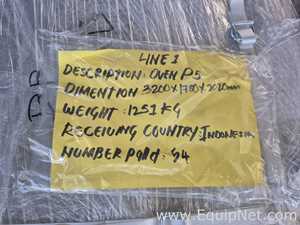 LINE 1
DESCRIPTION: OVEN P5
DIMENTION 3200X1700X2020mm
WEIGHT: 1251 KG
RECEIVING COUNTRY: INDONESIA
NUMBER Palld: S4
www.EquipNet.com